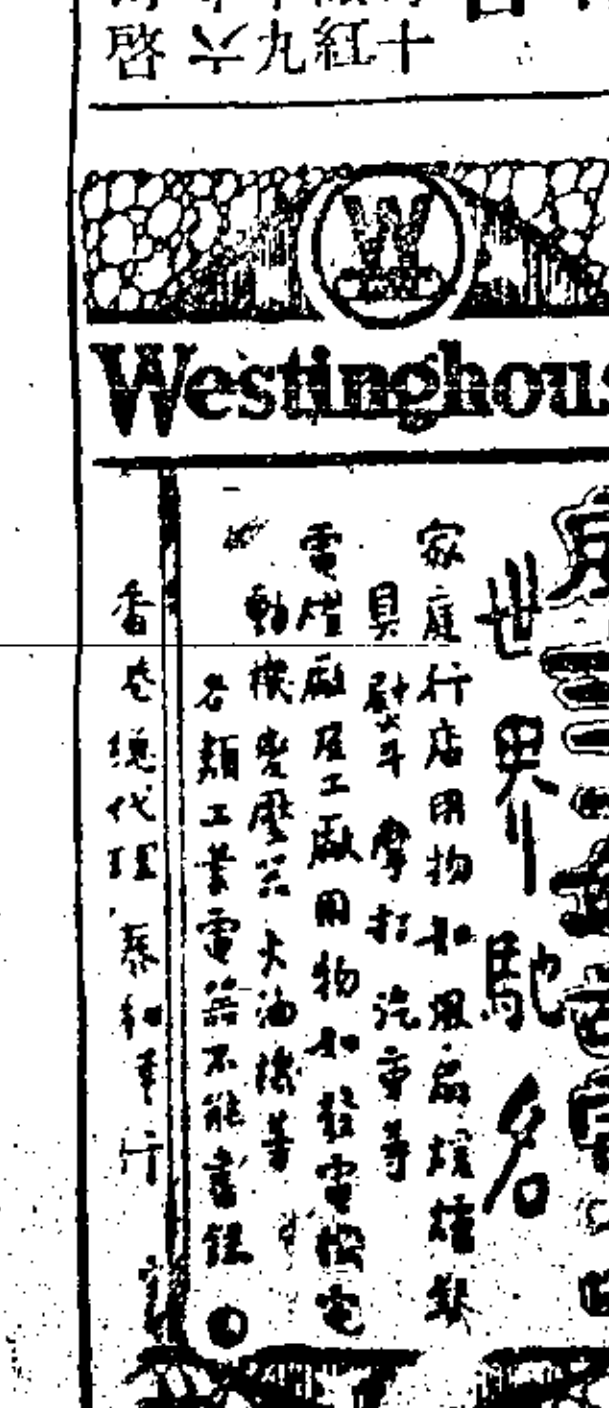 十紅九六啓
W
Westinghous
世界馳名
家庭行店用物如風扇煖爐
具熨斗摩打汽車等
電燈廠及工廠用物如發電機電
動機變壓器火油機等
各類工業電器不能盡錄
香港總代理 泰和車行